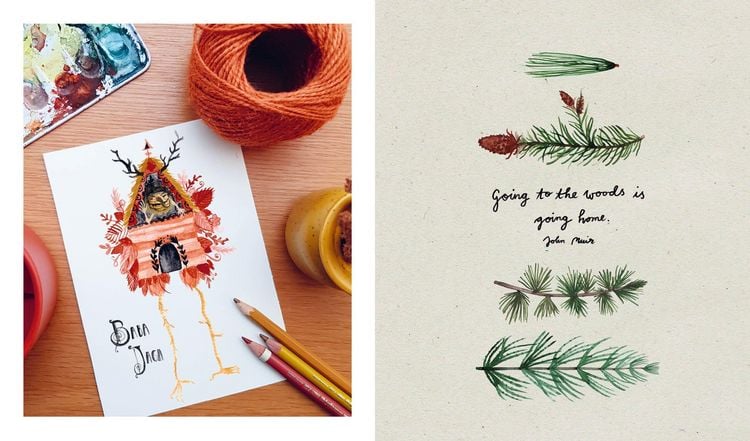 BABA
JAGA
Going to the woods is
going home.
John Muir